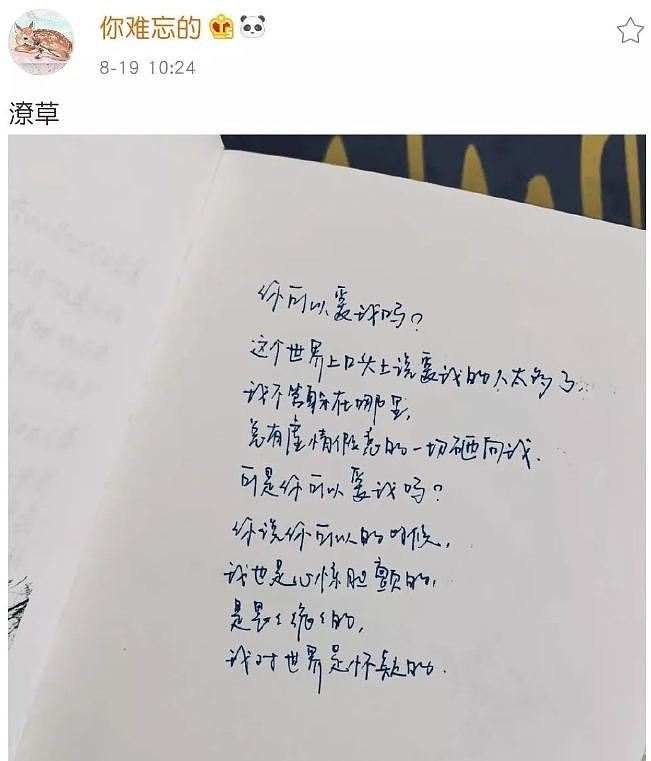 你难忘的
8-19 10:24
潦草
你可以爱我吗？
这个世界上口头上说爱我的人太多了.
我不管躲在哪里,
总有虚情假意的一切砸向我.
可是你可以爱我吗？
你说你可以的时候,
我也是心惊胆颤的,
是畏畏缩缩的,
我对世界是怀疑的.